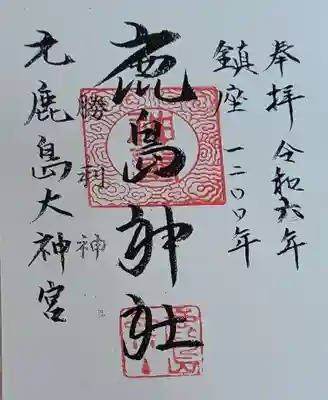 奉拝 令和六年
鎮座一二〇〇年
鹿島神社
勝利神
元鹿島大神宮